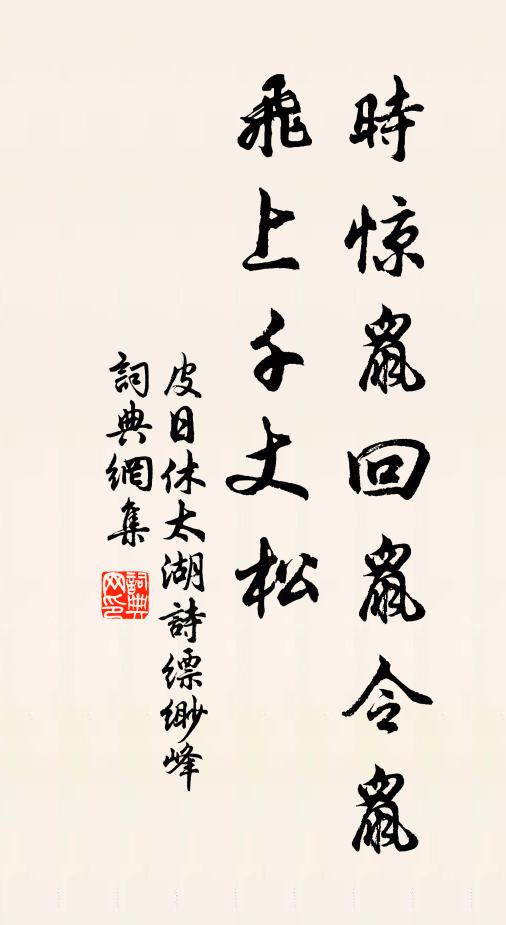 時惊鼠回鼠令鼠
飛上千丈松
皮日休太湖詩縹緲峰
詞典網集
詞典
网印